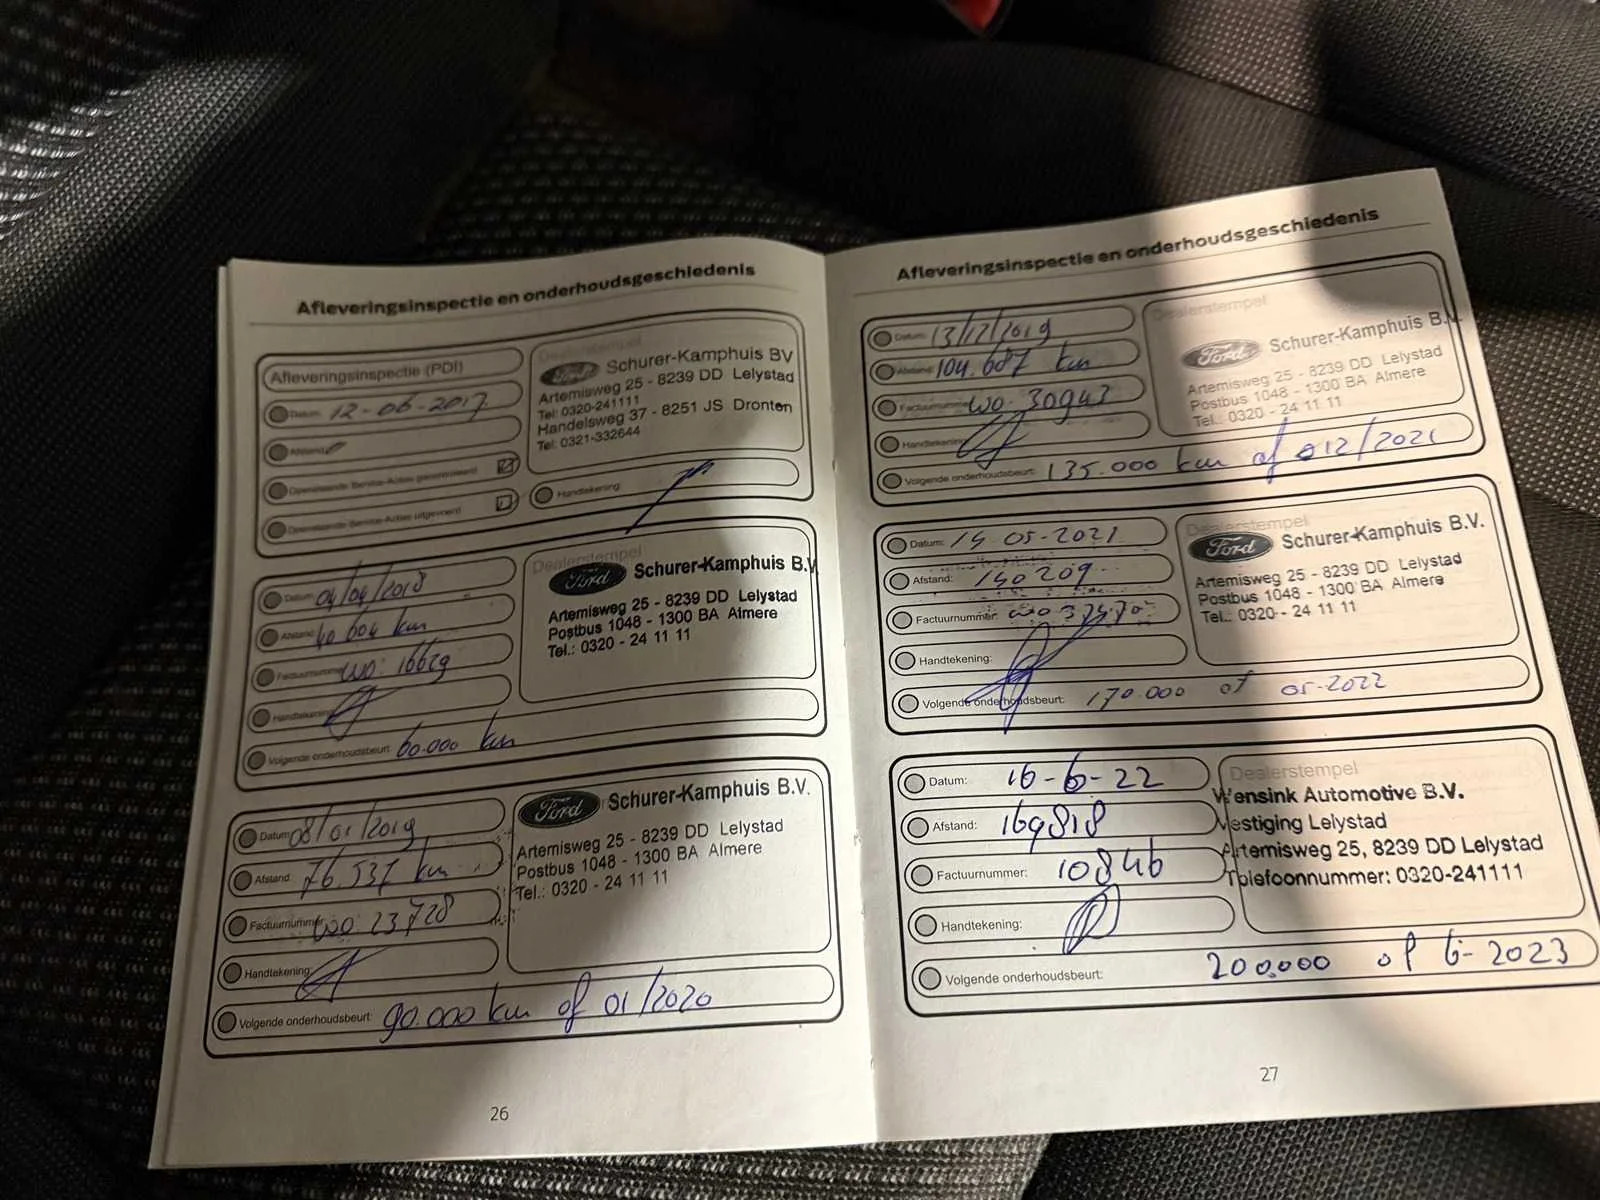 Afleveringsinspectie en onderhoudsgeschiedenis
Afleveringsinspectie (PDI)
Datum: 12-06-2017
Afstand:
Openstaande Service-Acties gecontroleerd
Openstaande Service-Acties uitgevoerd
Dealerstempel
Ford Schurer-Kamphuis BV
Artemisweg 25 - 8239 DD Lelystad
Tel: 0320-241111
Handelsweg 37 - 8251 JS Dronten
Tel: 0321-332644
Handtekening:
Datum: 04/04/2018
Afstand: 40 604 km
Factuurnummer: wo: 16629
Handtekening:
Volgende onderhoudsbeurt: 60.000 km
Dealerstempel
Ford Schurer-Kamphuis B.V.
Artemisweg 25 - 8239 DD Lelystad
Postbus 1048 - 1300 BA Almere
Tel.: 0320 - 24 11 11
Datum: 08/01/2019
Afstand: 76.537 km
Factuurnummer: wo: 23728
Handtekening:
Volgende onderhoudsbeurt: 90.000 km of 01/2020
Ford Schurer-Kamphuis B.V.
Artemisweg 25 - 8239 DD Lelystad
Postbus 1048 - 1300 BA Almere
Tel.: 0320 - 24 11 11
26
Afleveringsinspectie en onderhoudsgeschiedenis
Datum: 13/12/2019
Afstand: 104.687 km
Factuurnummer: wo: 30943
Handtekening:
Volgende onderhoudsbeurt: 135.000 km of 12/2021
Dealerstempel
Ford Schurer-Kamphuis B.V.
Artemisweg 25 - 8239 DD Lelystad
Postbus 1048 - 1300 BA Almere
Tel.: 0320 - 24 11 11
Datum: 14 05-2021
Afstand: 140209
Factuurnummer:
Handtekening:
Volgende onderhoudsbeurt: 170.000 of 05-2022
Dealerstempel
Ford Schurer-Kamphuis B.V.
Artemisweg 25 - 8239 DD Lelystad
Postbus 1048 - 1300 BA Almere
Tel.: 0320 - 24 11 11
Datum: 16-6-22
Afstand: 169818
Factuurnummer: 10846
Handtekening:
Volgende onderhoudsbeurt: 200.000 of 6-2023
Dealerstempel
Wensink Automotive B.V.
Vestiging Lelystad
Artemisweg 25, 8239 DD Lelystad
Telefoonnummer: 0320-241111
27